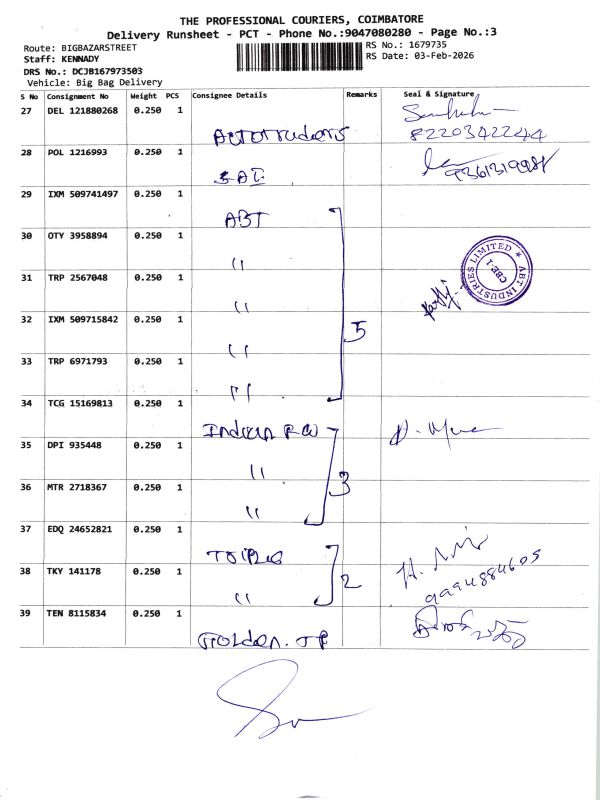 THE PROFESSIONAL COURIERS, COIMBATORE
Delivery Runsheet - PCT - Phone No.:9047080280 - Page No.:3
Route: BIGBAZARSTREET
RS No.: 1679735
Staff: KENNADY
RS Date: 03-Feb-2026
DRS No.: DCJB167973503
Vehicle: Big Bag Delivery
S No Consignment No Weight PCS Consignee Details Remarks Seal & Signature
27 DEL 121880268 0.250 1
8220342244
28 POL 1216993 0.250 1
SAI
29 IXM 509741497 0.250 1
ABT
30 OTY 3958894 0.250 1
"
31 TRP 2567048 0.250 1
"
ABT INDUSTRIES LIMITED ★
CBE-1
32 IXM 509715842 0.250 1
" 5
33 TRP 6971793 0.250 1
"
34 TCG 15169813 0.250 1
Indian
35 DPI 935448 0.250 1
" 3
36 MTR 2718367 0.250 1
"
37 EDQ 24652821 0.250 1
38 TKY 141178 0.250 1
" 2
9994884605
39 TEN 8115834 0.250 1
Golden